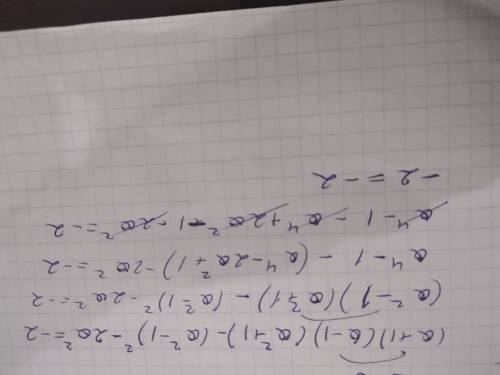 (a+1)(a-1)(a²+1)-(a²-1)²-2a²=-2
(a²-1)(a²+1)-(a²-1)²-2a²=-2
a⁴-1-(a⁴-2a²+1)-2a²=-2
a⁴-1-a⁴+2a²-1-2a²=-2
-2=-2